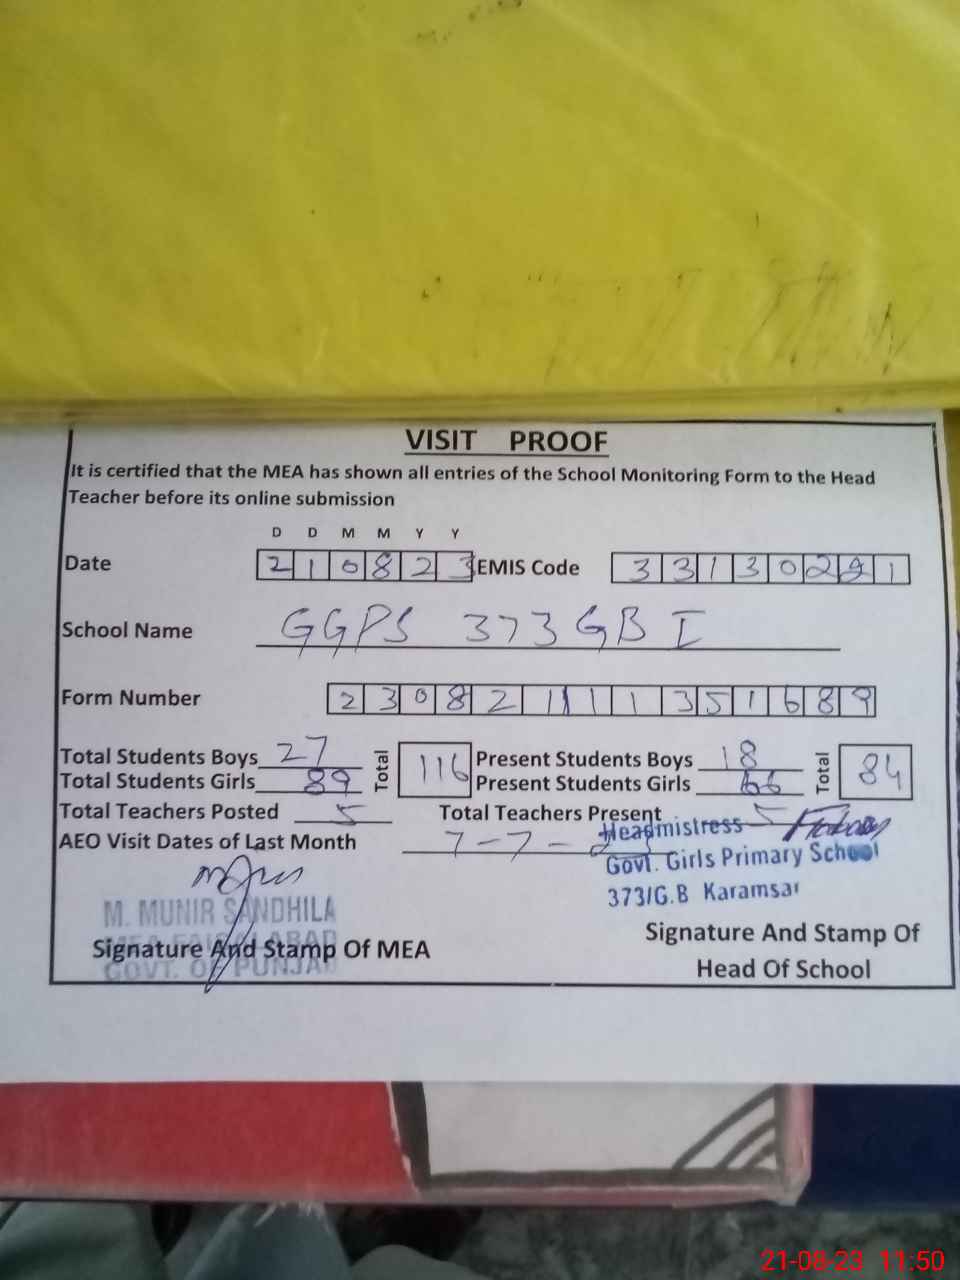 VISIT PROOF
It is certified that the MEA has shown all entries of the School Monitoring Form to the Head
Teacher before its online submission
D D M M Y Y
Date 2 1 0 8 2 3 EMIS Code 3 3 1 3 0 2 2 1
School Name GGPS 373 GB I
Form Number 2 3 0 8 2 1 1 1 1 3 5 1 6 8 9
Total Students Boys 27 Total 116 Present Students Boys 18 Total 84
Total Students Girls 89 Present Students Girls 66
Total Teachers Posted 5 Total Teachers Present 5
AEO Visit Dates of Last Month 7-7-
Headmistress
Govt. Girls Primary School
373/G.B Karamsar
M. MUNIR SANDHILA
MEA FAISALABAD
GOVT. OF PUNJAB
Signature And Stamp Of MEA
Signature And Stamp Of
Head Of School
21-08-23 11:50